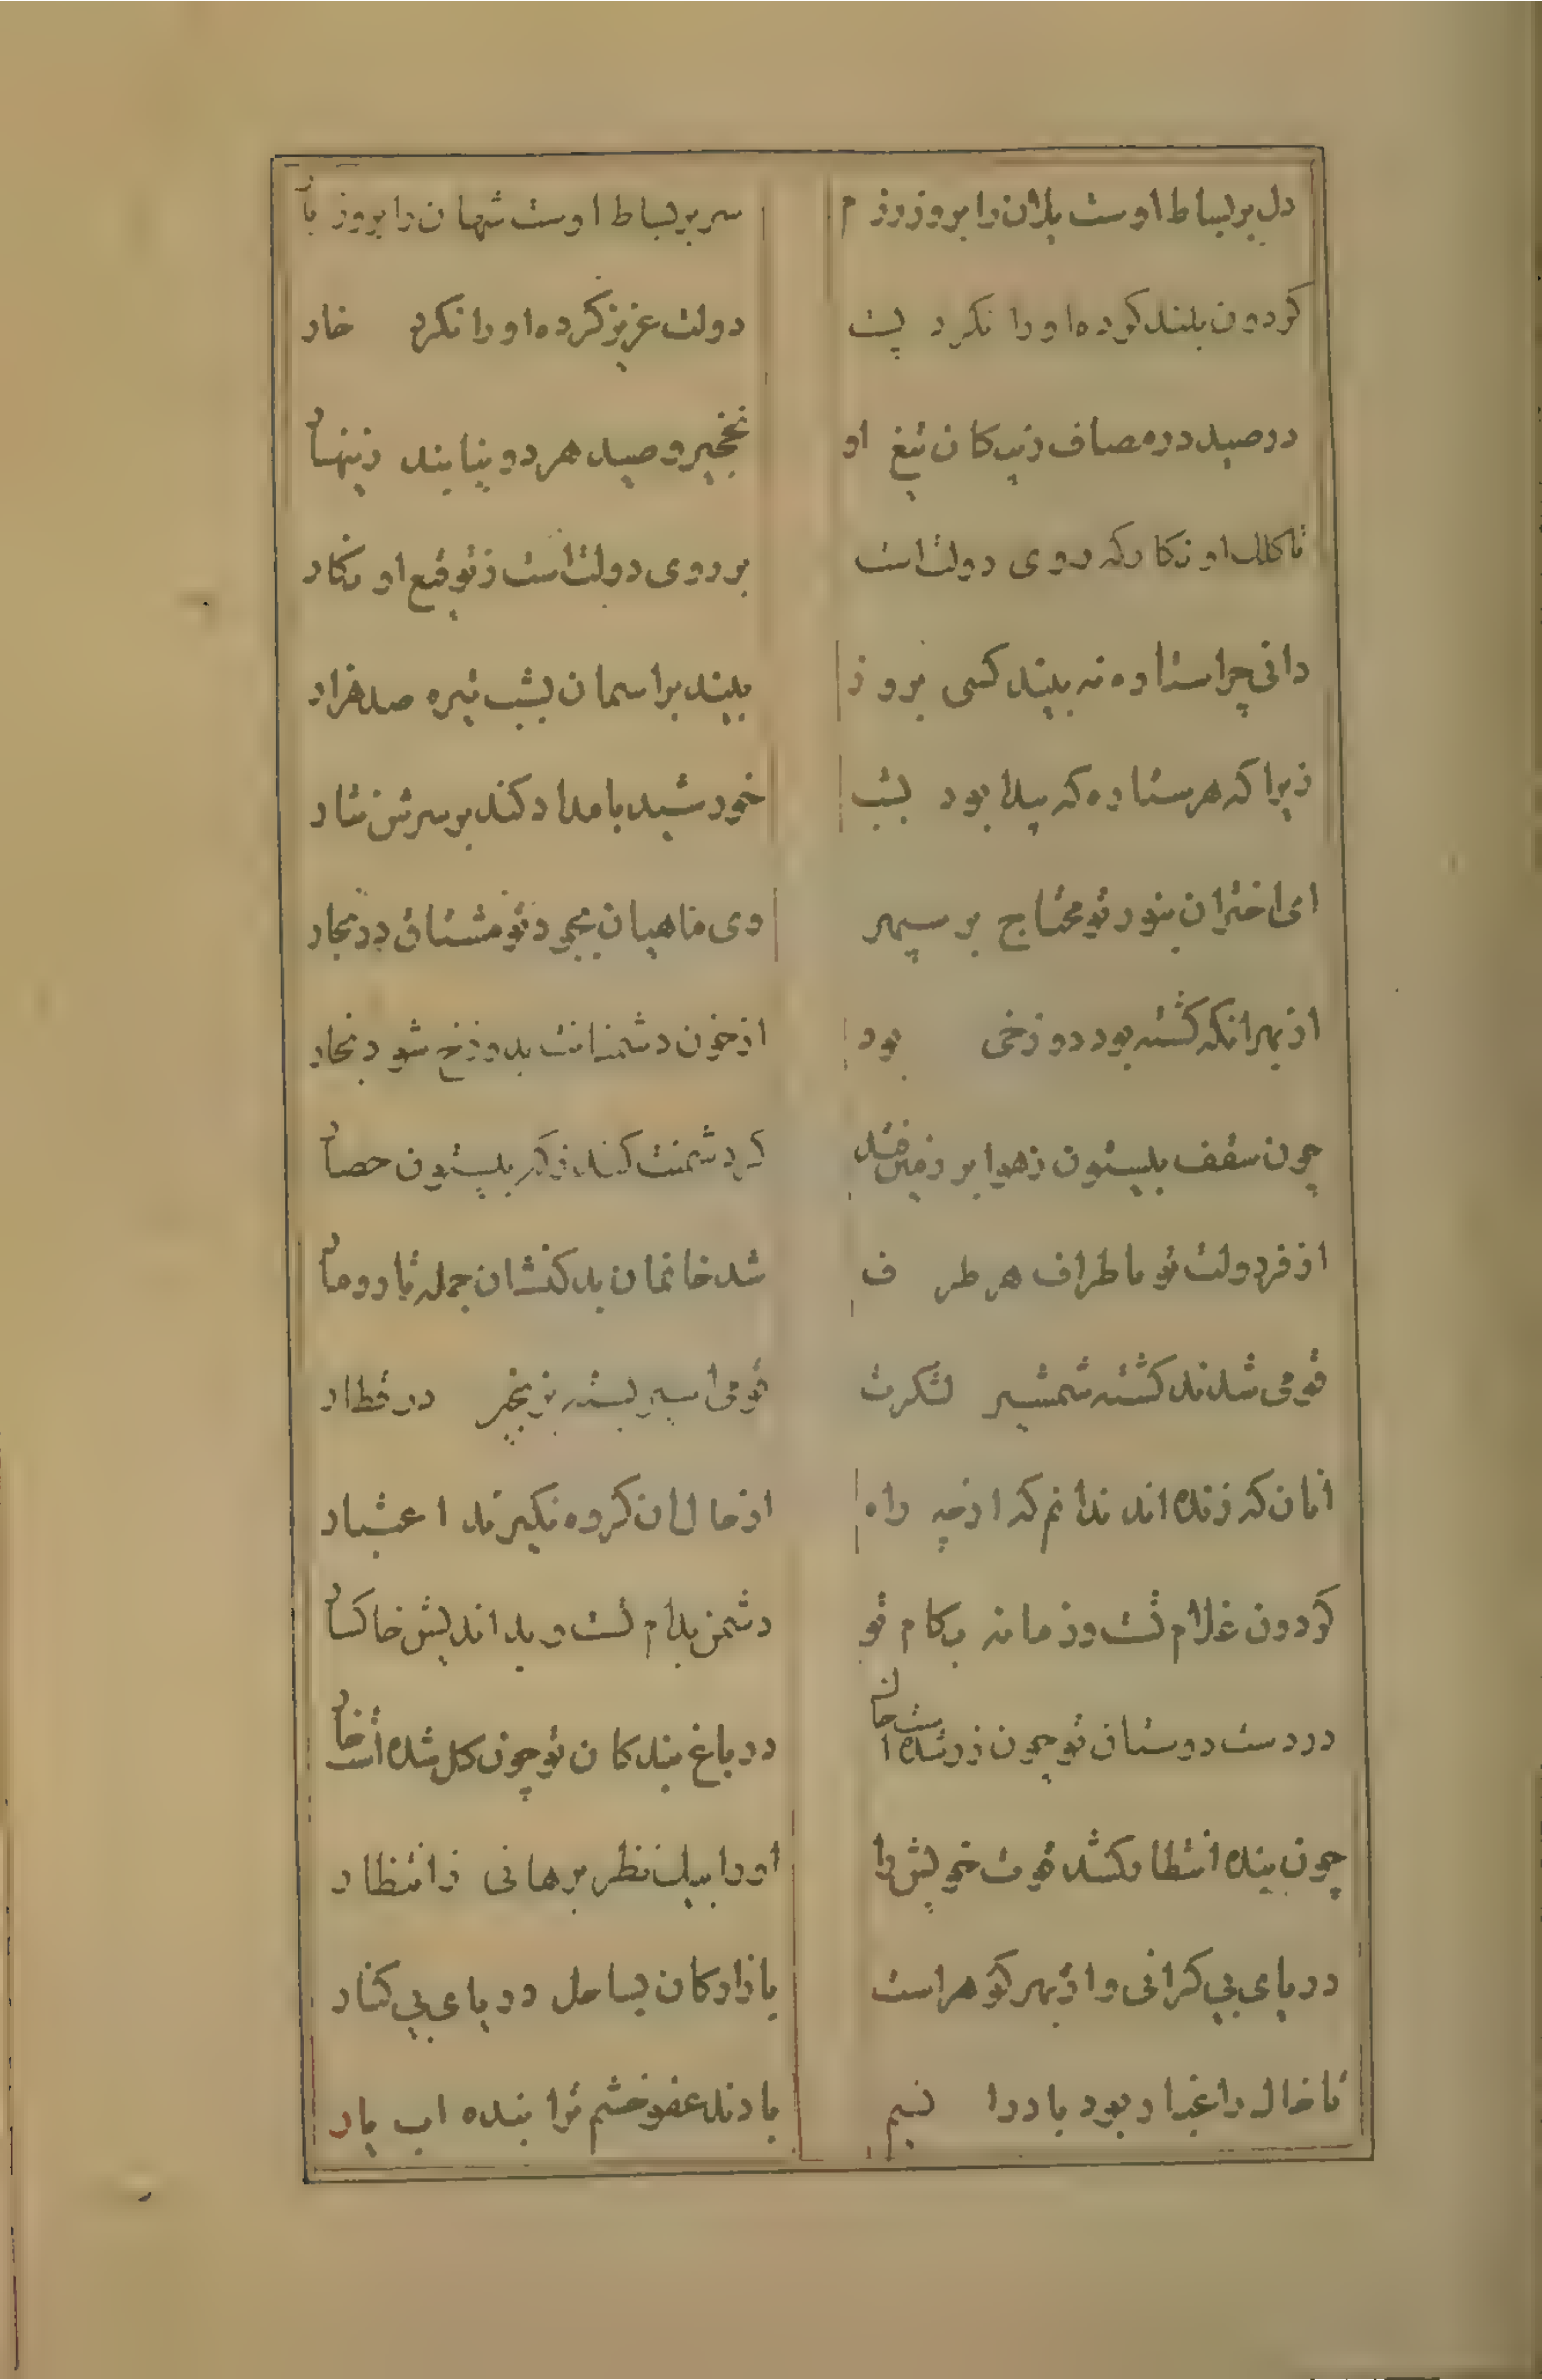 دل بر بساط اوست یلان را بروز رزم سر بر بساط اوست شهان را بروز بار
کردون بلند کرده او را نکرد پست دولت عزیز کرده او را نکرد خار
در صید در مصاف ز پیکان تیغ او نخجیر و صید هر دو نیابند زینهار
تا کلک او نکارکه روی دولت است بر روی دولت است ز توقیع او نکار
دانی چرا ستاره نه بیند کسی بروز بیند بر اسمان بشب تیره صد هزار
زیرا که هر ستاره که پیدا بود بشب خورشید بامداد کند بر سرش نثار
ای اختران بنور تو محتاج بر سپهر وی ماهیان بجود تو مشتاق در بحار
از بهر انکه کشته بود دوزخی بود از خون دشمنانت بدوزخ شود بخار
چون سقف بیستون ز هوا بر زمین فتد کر دشمنت کند ز که بیستون حصار
از فر دولت تو باطراف هر طرف شد خانمان بدکنشان جمله تار و مار
قومی شدند کشته شمشیر لشکرت قومی اسیر بسته بزنجیر در قطار
انان که زنده اند ندانم که از چه راه از حال ان کروه نکیرند اعتبار
کردون غلام تست و زمانه بکام تو دشمن بدام تست و بد اندیش خاکسار
در دست دوستان تو چون زر شده است خار در باغ بندکان تو چون کل شده است خار
چون بنده انتظار کشد قوت خویش را او را بیک نظر برهانی ز انتظار
دریای بی کرانی و از بهر کوهر است بازارکان بساحل دریای بی کنار
تا خاک را غبار بود باد را نسیم بادند عفو و خشم ترا بنده اب یار